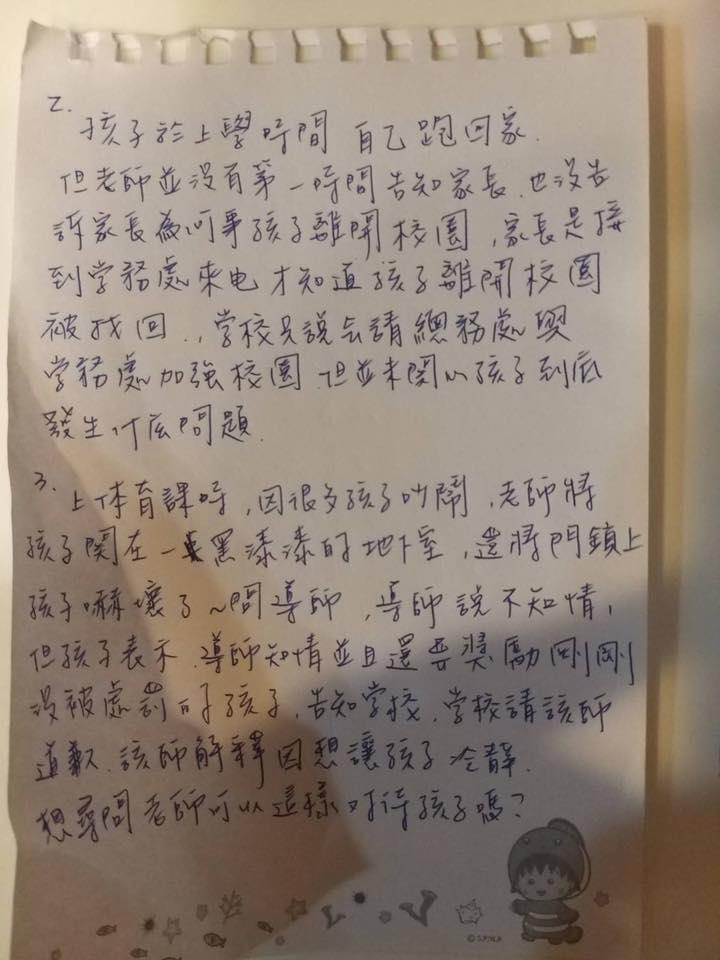 2.
孩子於上學時間 自己跑回家.
但老師並沒有第一時間告知家長.也沒告
訴家長為何事孩子離開校園,家長是接
到学務處來电才知道孩子離開校園
被找回.,学校只說会請總務處與
学務處加強校園.但並未関心孩子到底
發生什底問題.
3.
上体育課時,因很多孩子吵鬧,老師將
孩子関在一黑漆漆的地下室,還將門鎖上
孩子嚇壞了~問導師,導師說不知情,
但孩子表示.導師知情並且還要獎勵剛剛
沒被處罰的孩子,告知学校.学校請該師
道歉.該師解釋因想讓孩子冷靜.
想尋問老師可以這樣对待孩子嗎?
© S.P/N.A